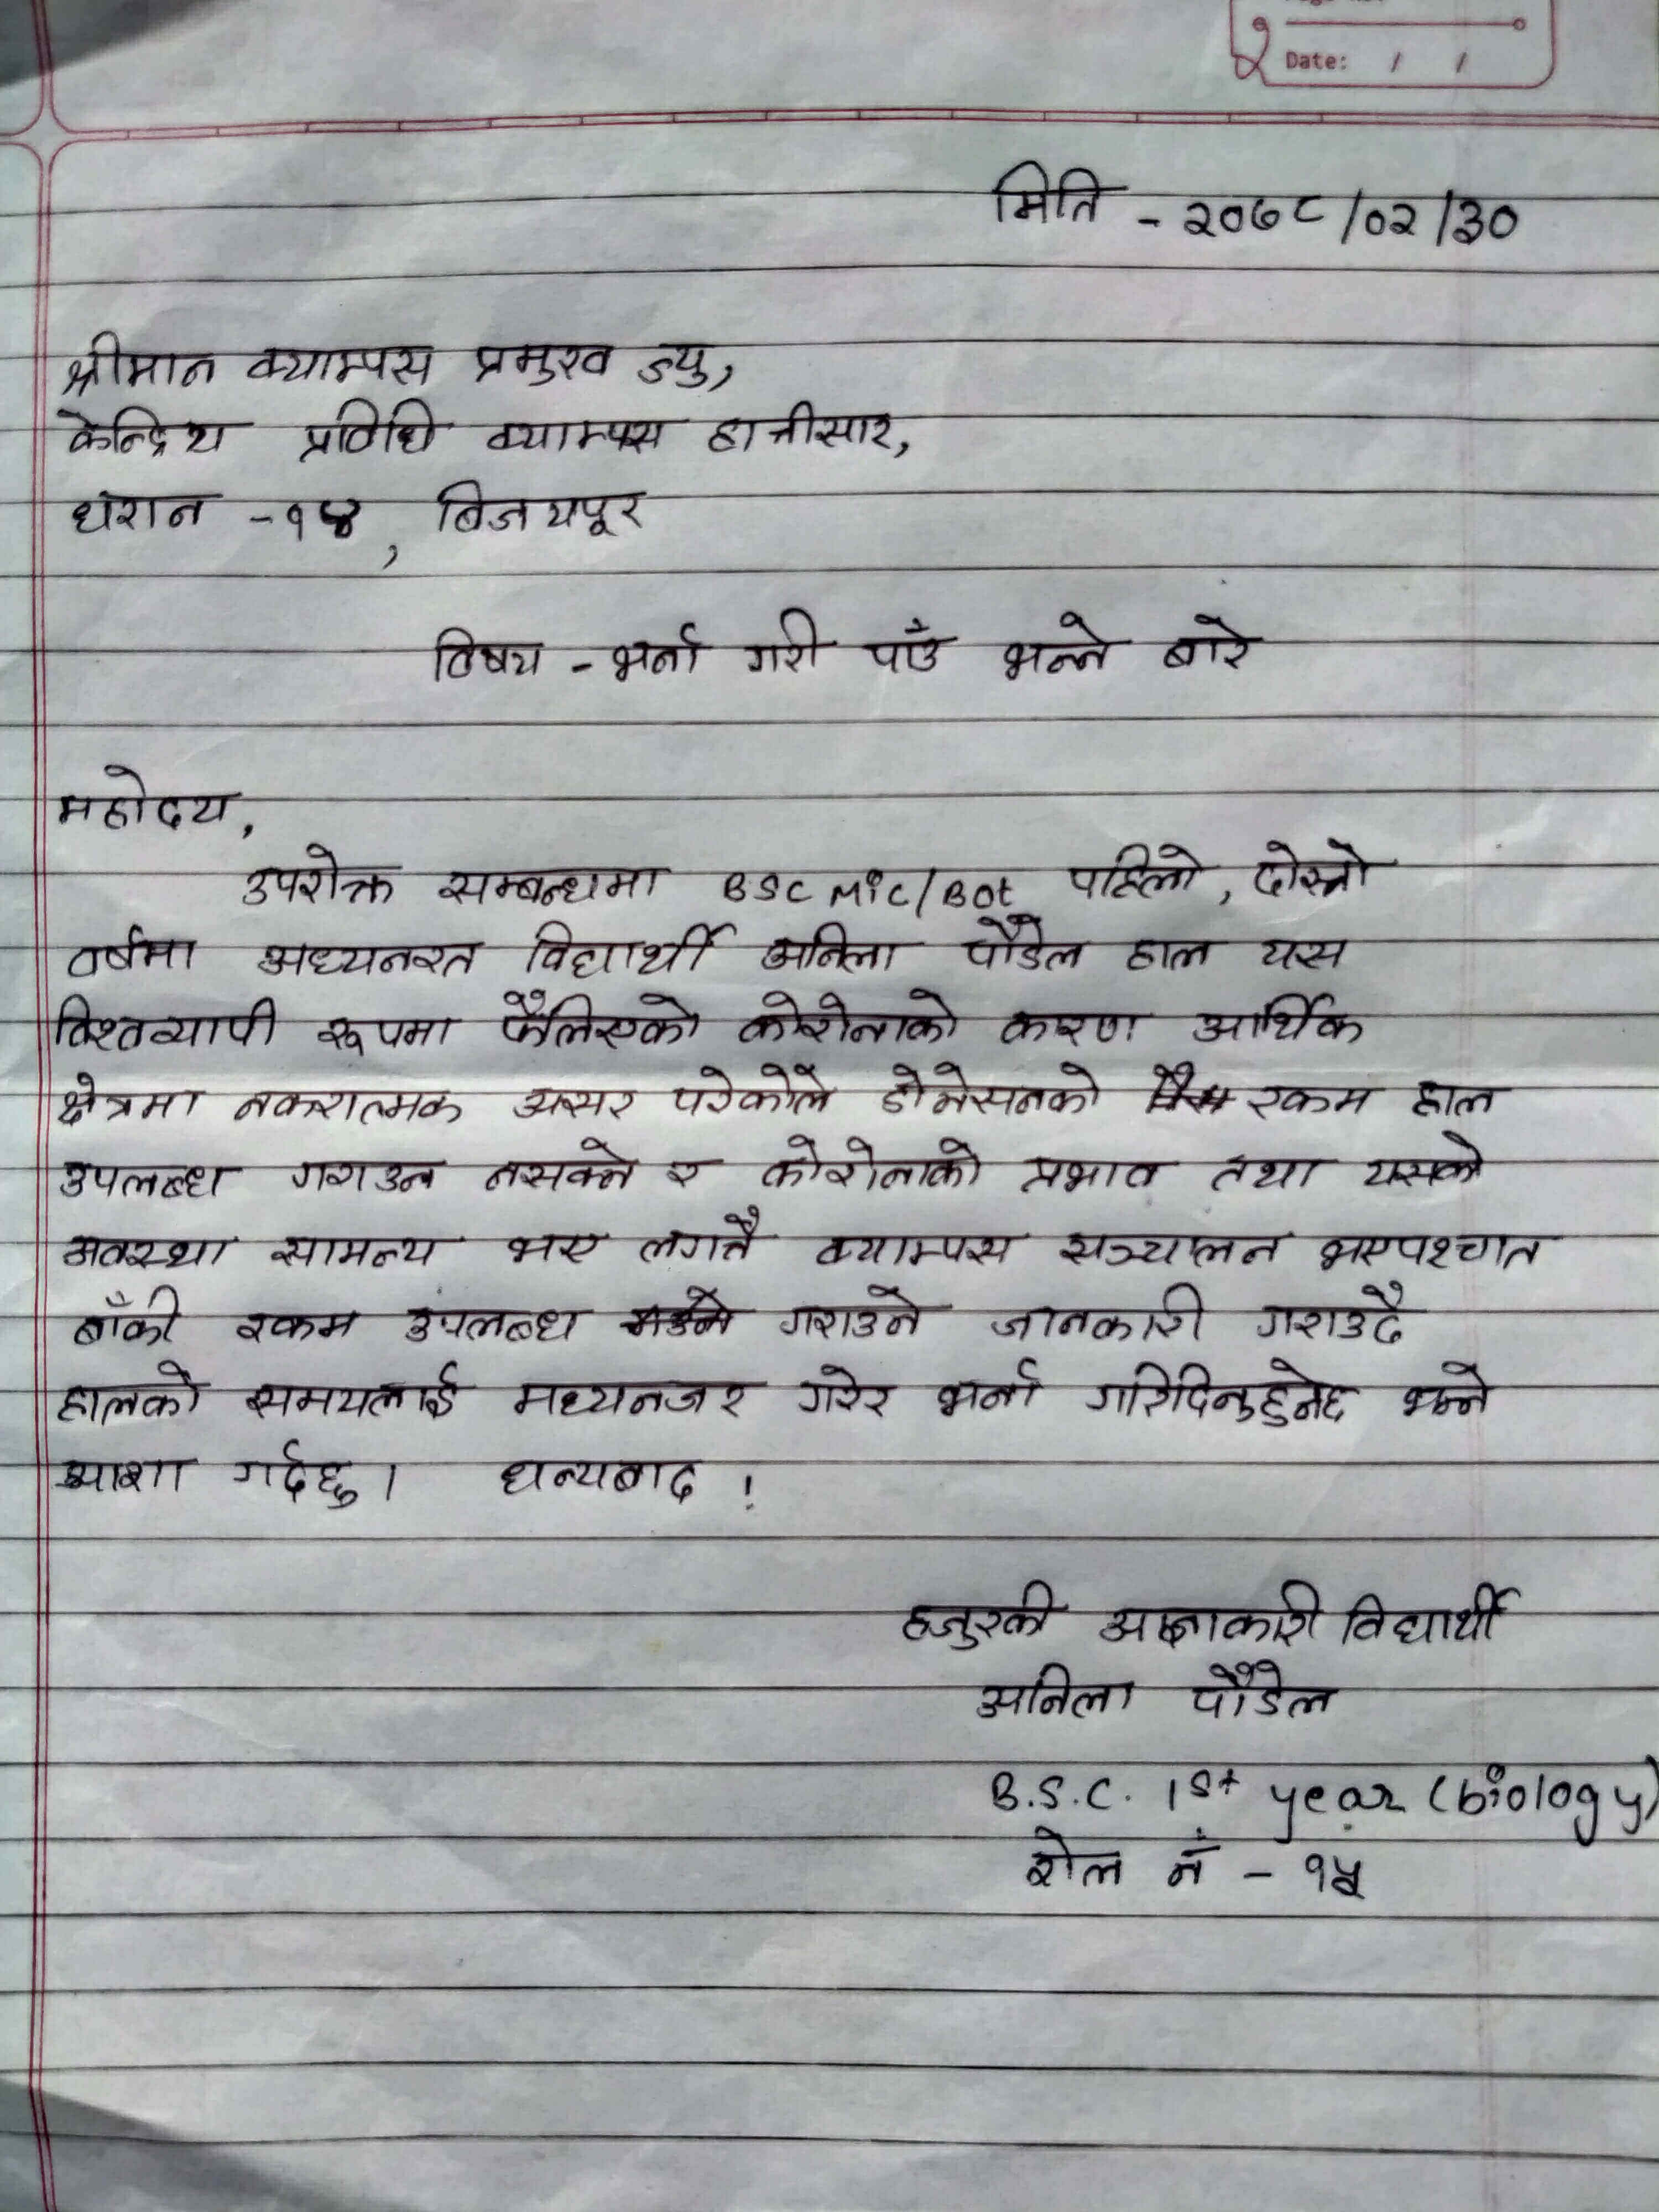 Date: / /
मिति - २०७८/०२/३०
श्रीमान क्याम्पस प्रमुख ज्यु,
केन्द्रिय प्रविधि क्याम्पस हात्तीसार,
धरान -१४, विजयपूर
विषय - भर्ना गरी पाँउ भन्ने बारे
महोदय,
उपरोक्त सम्बन्धमा BSC Mic/Bot पहिलो, दोस्रो
वर्षमा अध्यनरत विद्यार्थी अनिला पौडेल हाल यस
विश्वव्यापी रूपमा फैलिएको कोरोनाको कारण आर्थिक
क्षेत्रमा नकरात्मक असर परेकोले डोनेसनको रकम हाल
उपलब्ध गराउन नसक्ने र कोरोनाको प्रभाव तथा यसको
अवस्था सामन्य भए लगत्तै क्याम्पस सञ्चालन भएपश्चात
बाँकी रकम उपलब्ध गराउने जानकारी गराउदै
हालको समयलाई मध्यनजर गरेर भर्ना गरिदिनुहुनेछ भन्ने
आशा गर्दछु। धन्यबाद !
हजुरको आज्ञाकारी विद्यार्थी
अनिला पौडेल
B.S.C. 1st year (biology)
रोल नँ - १५